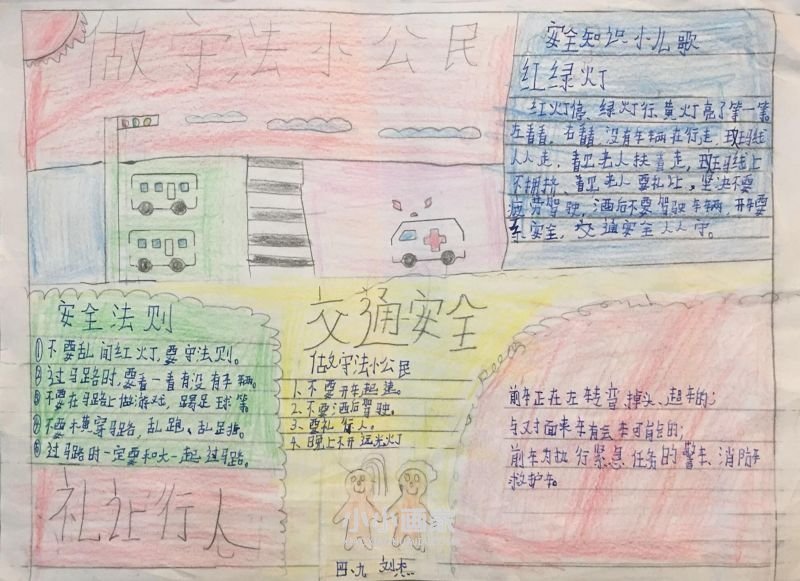 做守法小公民
安全知识小儿歌
红绿灯
红灯停、绿灯行,黄灯亮了等一等
左看看,右看看,没有车辆在行走,斑马线
人人走,看见老人扶着走,斑马线上
不拥挤、看见老人要礼让,坚决不要
疲劳驾驶,酒后不要驾驶车辆,开车要
系安全,交通安全人人守。
安全法则
①不要乱闯红灯,要守法则。
②过马路时,要看一看有没有车辆。
③不要在马路上做游戏,踢足球等
④不要横穿马路,乱跑、乱
⑤过马路时一定要和大一起过马路。
礼让行人
交通安全
做守法小公民
1.不要开车超速。
2.不要酒后驾驶。
3.要礼行人。
4.晚上不开远光灯
前车正在左转弯、掉头、超车的;
与对面来车有会车可能的;
前车为执行紧急任务的警车、消防车
救护车。
小小画家
四、九 刘杰